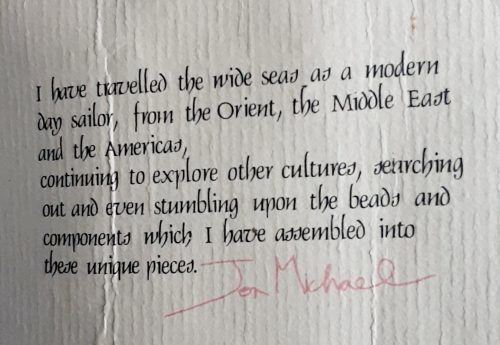 I have travelled the wide seas as a modern
day sailor, from the Orient, the Middle East
and the Americas,
continuing to explore other cultures, searching
out and even stumbling upon the beads and
components which I have assembled into
these unique pieces.
Jon Michael